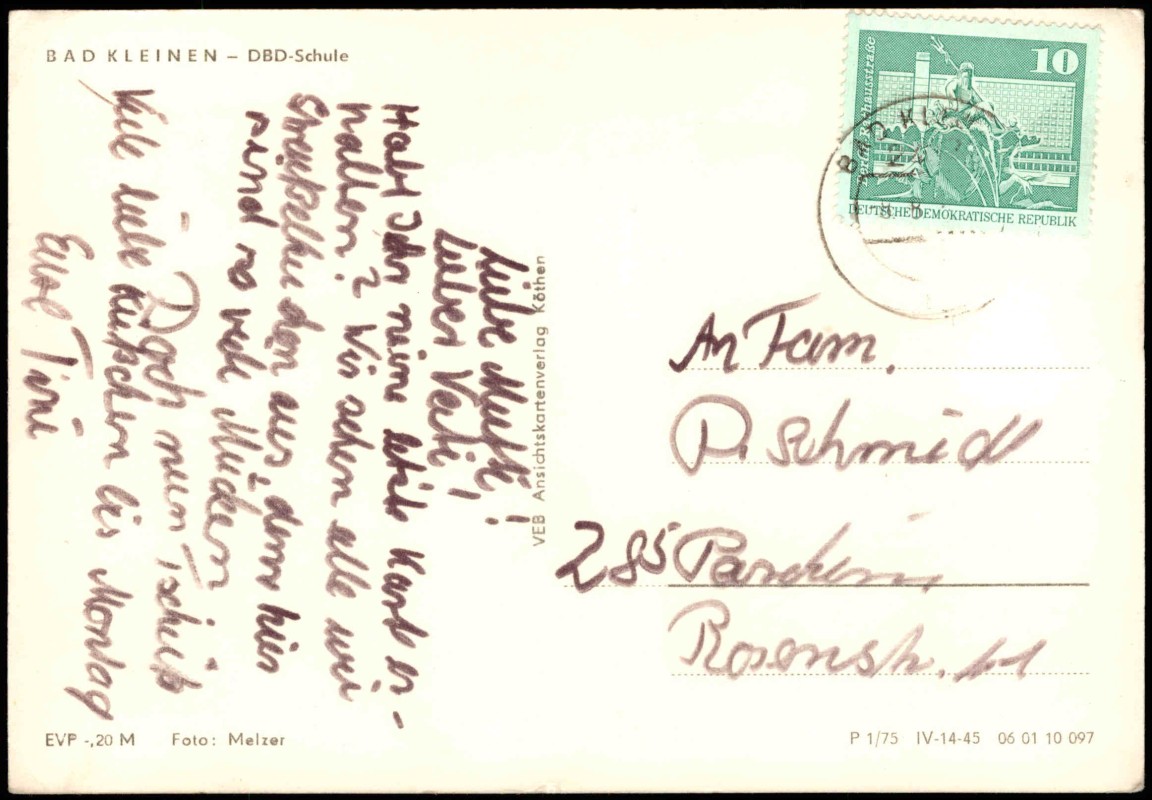 BAD KLEINEN – DBD-Schule
Liebe Mutti!
Lieber Vati!
Habt Ihr meine letzte Karte er-
halten? Wir sehen alle wie
Streuselkuchen aus, denn hier
sind so viele Mücken
Doch nun Tschüß
Viele liebe Küßchen bis Montag
Eure Tini
VEB Ansichtskartenverlag Köthen
10
Rathausstraße
DEUTSCHE DEMOKRATISCHE REPUBLIK
BAD KLEIN
An Fam.
P. Schmidt
285 Parchim,
Rosenstr. 11
EVP -,20 M Foto: Melzer
P 1/75 IV-14-45 06 01 10 097